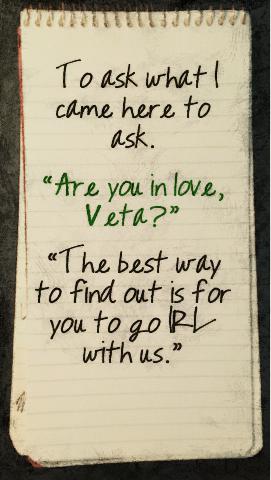 To ask what I
came here to
ask.
"Are you in love,
Veta?"
"The best way
to find out is for
you to go IRL
with us."